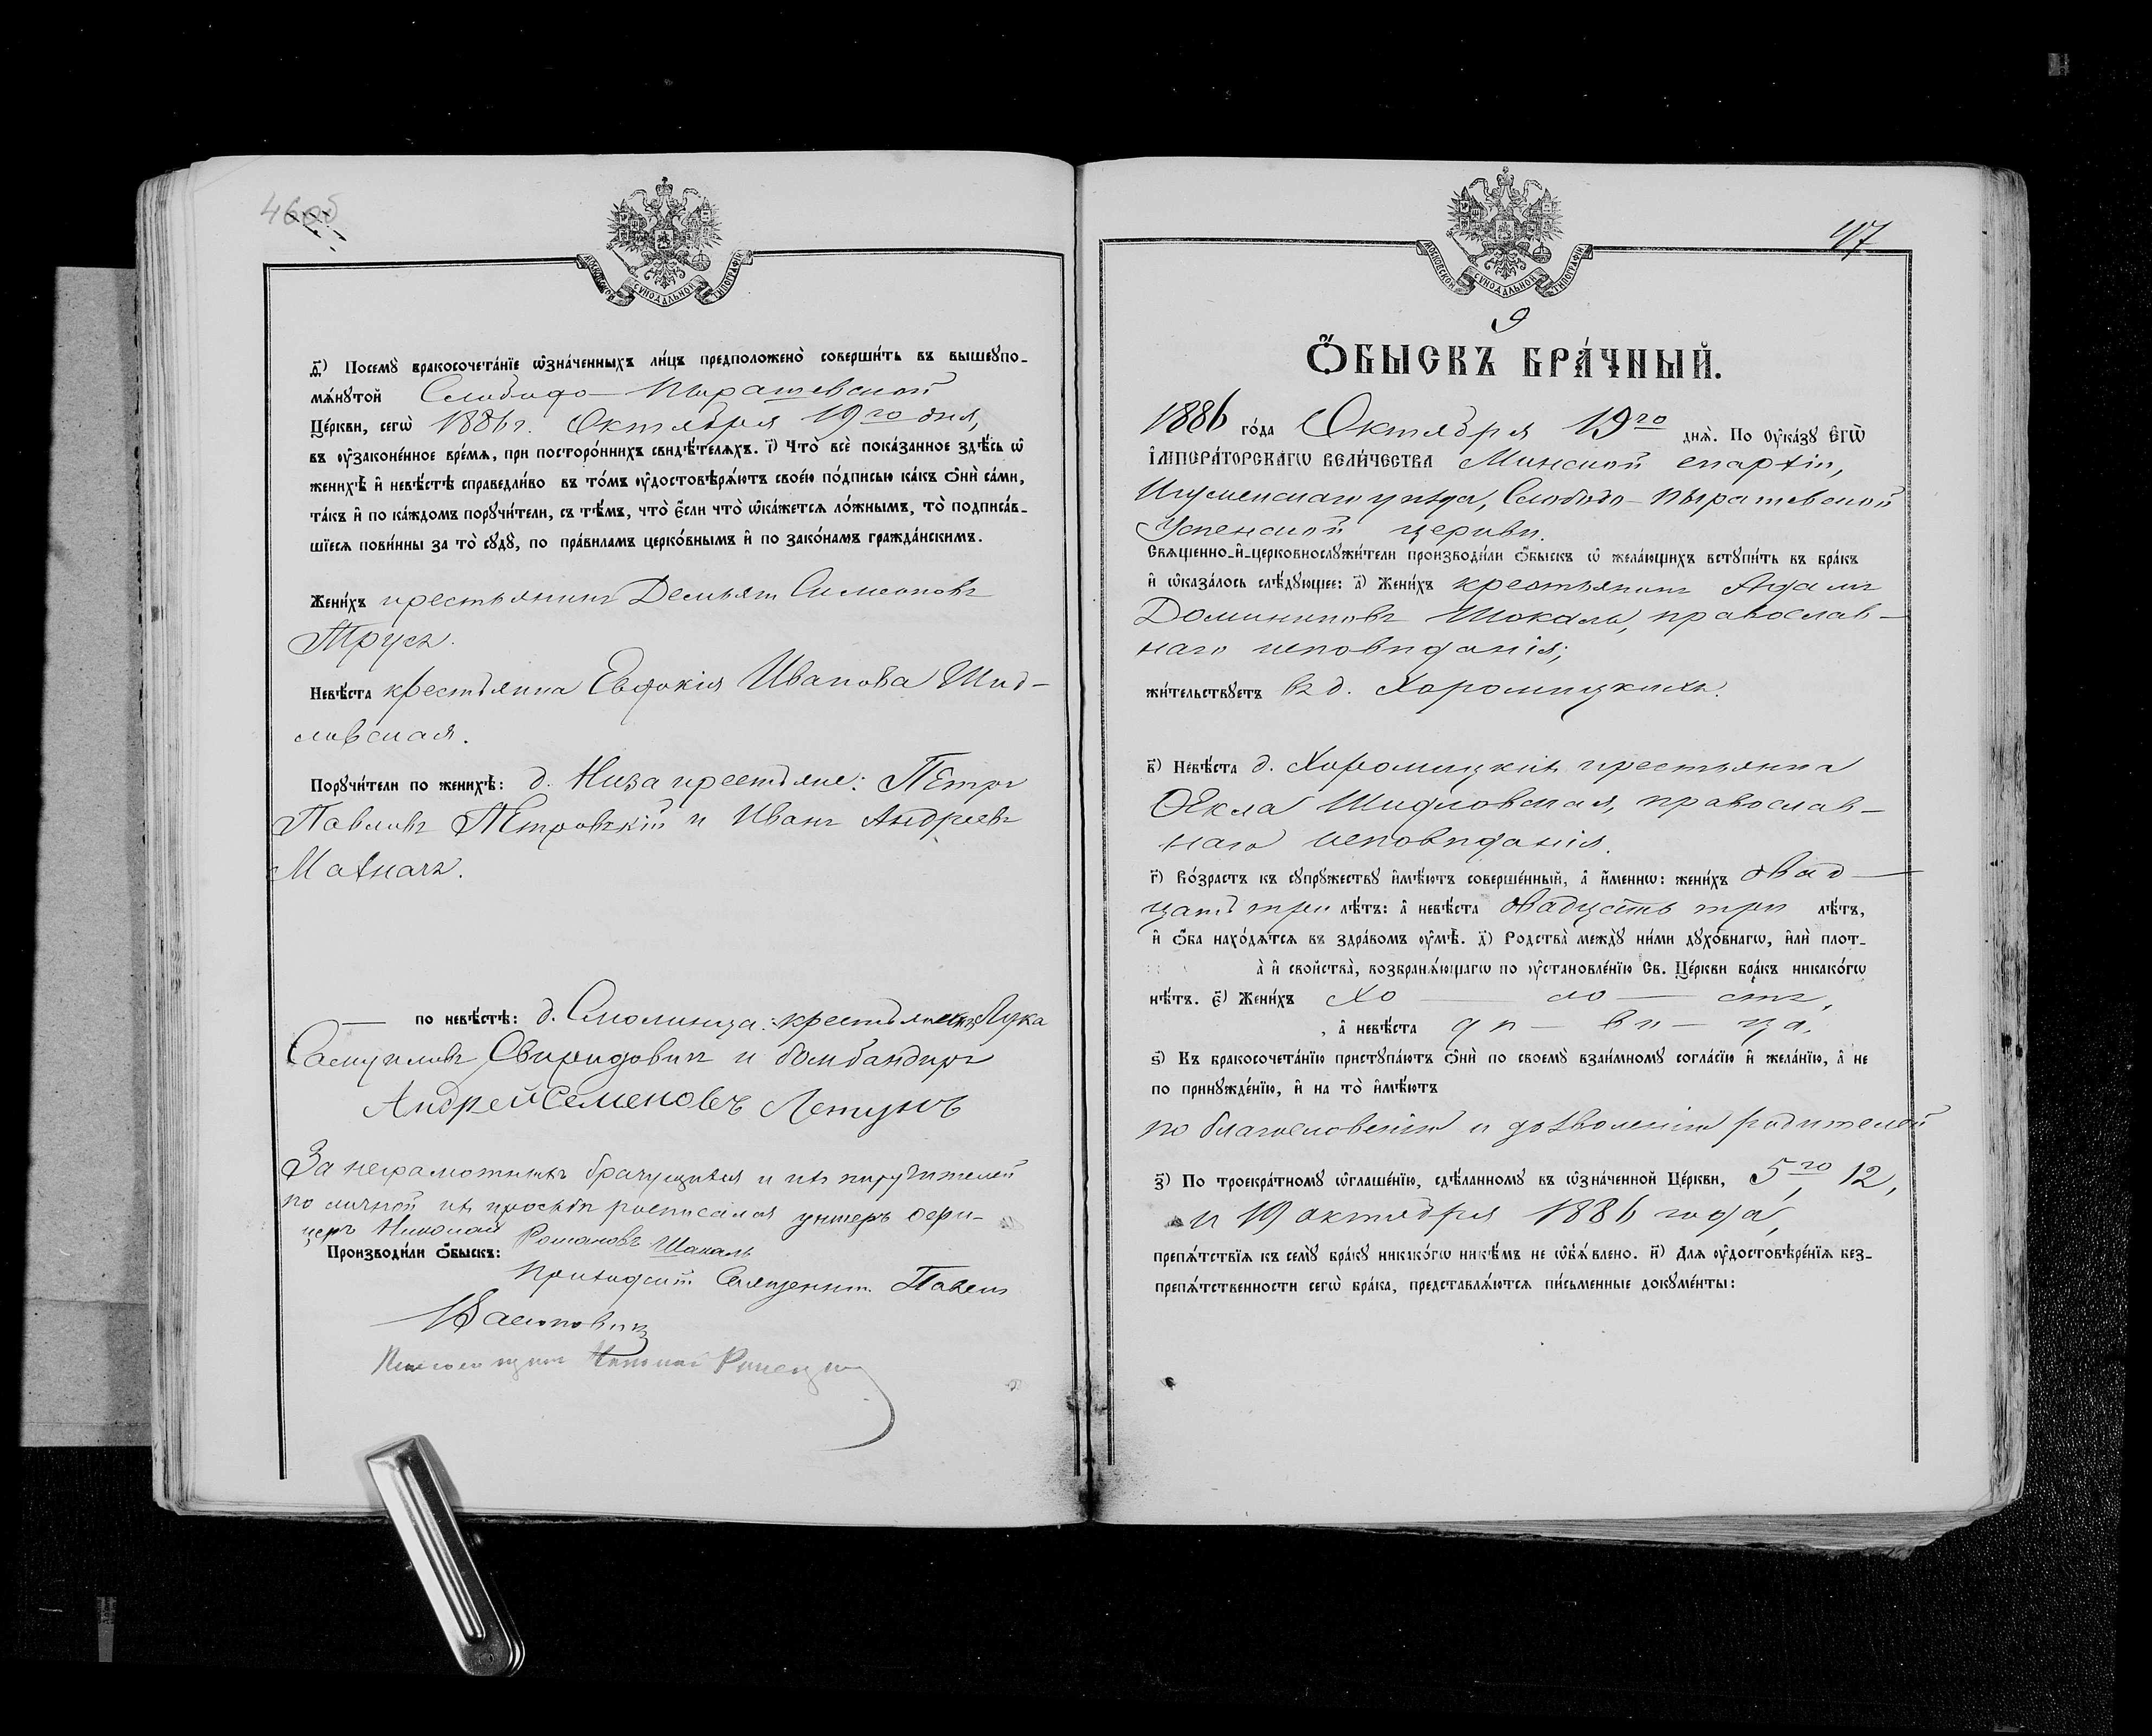 46об
МОСКОВСКОЙ СѴНОДАЛЬНОЙ ТИПОГРАФІИ
д҃) Посемꙋ̀ бракосочета́нїе ѡ҆зна́ченныхъ ли́цъ предположено̀ соверши́ть въ вышеꙋпо-
мѧ́нꙋтой Слободо-Пырашевской
Це́ркви, сегѡ̀ 1886 г. Октября 19го дня,
въ ᲂу҆законе́нное вре́мѧ, при посторо́ннихъ свидѣ́телѧхъ. і҃) Что̀ всѐ пока́занное здѣ́сь ѡ҆
женихѣ̀ и҆ невѣ́стѣ справедли́во въ то́мъ ᲂу҆достовѣрѧ́ютъ свое́ю по́дписью ка́къ ѻ҆нѝ са́ми,
та́къ и҆ по ка́ждомъ порꙋчи́тели, съ тѣ́мъ, что̀ є҆́сли что̀ ѡ҆ка́жется ло́жнымъ, то̀ подписа́в-
шїеся пови́нны за то̀ сꙋдꙋ̀, по пра́виламъ церко́внымъ и҆ по зако́намъ гражда́нскимъ.
Жени́хъ крестьянинъ Демьянъ Симеоновъ
Трусъ.
Невѣ́ста крестьянка Евдокія Иванова Шид-
ловская.
Порꙋчи́тели по женихѣ̀: д. Низа крестьяне: Петръ
Павловъ Петровскій и Иванъ Андреевъ
Махначъ.
по невѣ́стѣ: д. Смолинца: крестьянинъ Лука
Самуиловъ Свиридовичъ и бомбандиръ
Андрей Семеновъ Летунъ
За неграмотныхъ брачущихся и ихъ поручителей
по личной ихъ просьбѣ росписался унтеръ офи-
церъ Николай Романовъ Шакаль
Производи́ли ѻ҆́быскъ:
Приходскій Священникъ Павелъ
Псаломщикъ Николай
47
МОСКОВСКОЙ СѴНОДАЛЬНОЙ ТИПОГРАФІИ
9
Ѻ҆́БЫСКЪ БРА́ЧНЫЙ.
1886 го́да Октября 19го днѧ̀. По ᲂу҆ка́зꙋ є҆гѡ̀
і҆мпера́торскагѡ вели́чества Минской епархіи,
Игуменскаго уѣзда, Слободо-Пырашевской
Успенской церкви.
Свѧщенно-и҆-церковнослꙋжи́тели производи́ли ѻ҆́быскъ ѡ҆ жела́ющихъ встꙋпи́ть въ бра́къ
и҆ ѡ҆каза́лось слѣ́дꙋющее: а҃) Жени́хъ крестьянинъ Адамъ
Доминиковъ Шокаль, православ-
наго исповѣданія;
жи́тельствꙋетъ въ д. Хоромицкихъ.
в҃) Невѣ́ста д. Хоромицкихъ крестьянка
Ѳекла Шидловская, православ-
наго исповѣданія.
г҃) Во́зрастъ къ сꙋпрꙋ́жествꙋ и҆мѣ́ютъ соверше́нный, а҆ и҆́менно: жени́хъ двад-
цать три лѣ́тъ: а҆ невѣ́ста двадцать три лѣ́тъ,
и҆ ѻ҆́ба нахо́дѧтсѧ въ здра́вомъ ᲂу҆мѣ̀. д҃) Родства̀ междꙋ̀ ни́ми дꙋхо́внагѡ, и҆лѝ плот-
а̀ и҆ свойства̀, возбранѧ́ющагѡ по ᲂу҆становле́нїю Св. Це́ркви бра́къ никако́гѡ
нѣ́тъ. є҃) Жени́хъ хо — ло — стъ,
, а҆ невѣ́ста дѣ — ви — ца.
ѕ҃) Къ бракосочета́нїю пристꙋпа́ютъ ѻ҆нѝ по своемꙋ̀ взаи́мномꙋ согла́сїю и҆ жела́нїю, а҆ не
по принꙋжде́нїю, и҆ на то̀ и҆мѣ́ютъ
по благословенію и дозволенію родителей
з҃) По троекра́тномꙋ ѡ҆глаше́нїю, сдѣ́ланномꙋ въ ѡ҆зна́ченной Це́ркви, 5го, 12,
и 19 октября 1886 года,
препѧ́тствїѧ къ семꙋ̀ бра́кꙋ никако́гѡ никѣ́мъ не ѡ҆б̾ѧ́влено. и҃) Для ᲂу҆достовѣре́нїѧ без-
препѧ́тственности сегѡ̀ бра́ка, представлѧ́ютсѧ пи́сьменные докꙋме́нты: